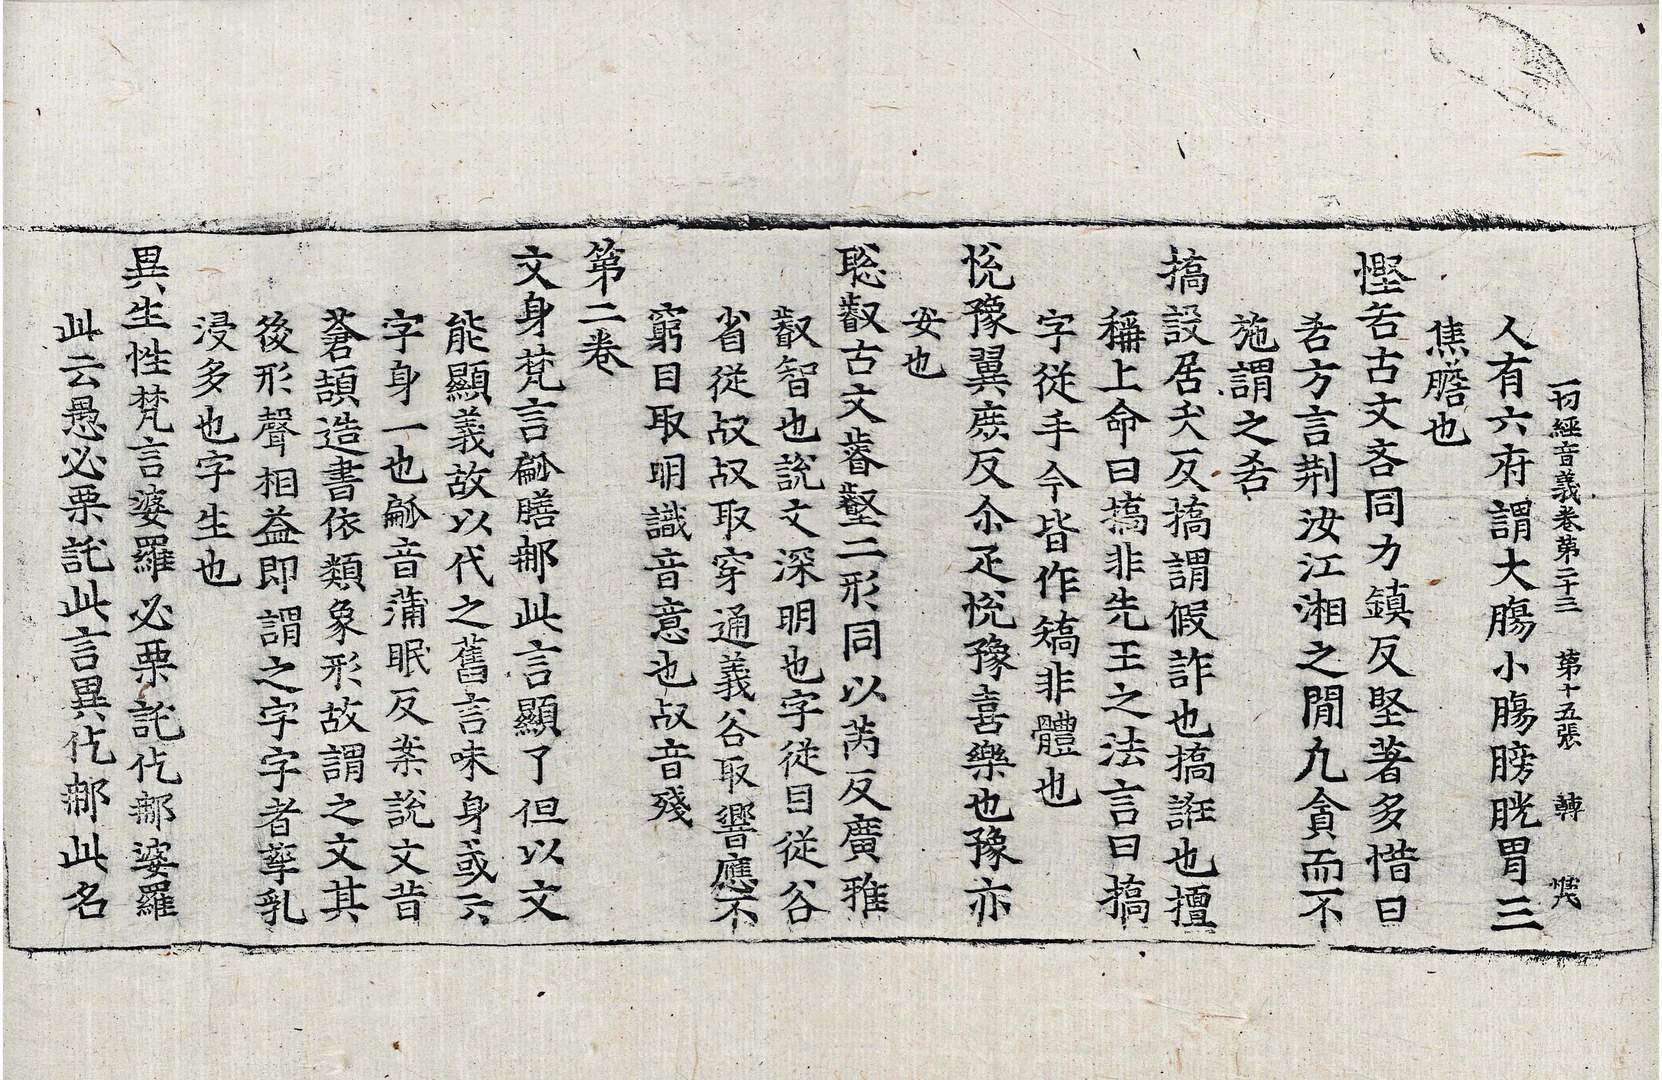 一切經音義卷第二十三 第十五張 轉
人有六府謂大腸小腸膀胱胃三
焦膽也
慳悋古文吝同力鎮反堅著多惜曰
悋方言荆汝江湘之閒凡貪而不
施謂之悋
撟設居夭反撟謂假詐也撟誑也擅
稱上命曰撟非先王之法言曰撟
字從手今皆作矯非體也
悅豫翼庶反尒疋悅豫喜樂也豫亦
安也
聡叡古文睿壡二形同以芮反廣雅
叡智也說文深明也字從目從谷
省從𣦼𣦼取穿通義谷取響應不
窮目取明識音意也𣦼音殘
第二卷
文身梵言便膳那此言顯了但以文
能顯義故以代之舊言味身或云
字身一也音蒲眠反案說文昔
蒼頡造書依類象形故謂之文其
後形聲相益即謂之字字者孳乳
浸多也字生也
異生性梵言婆羅必栗託仡那婆羅
此云愚必栗託此言異仡那此名